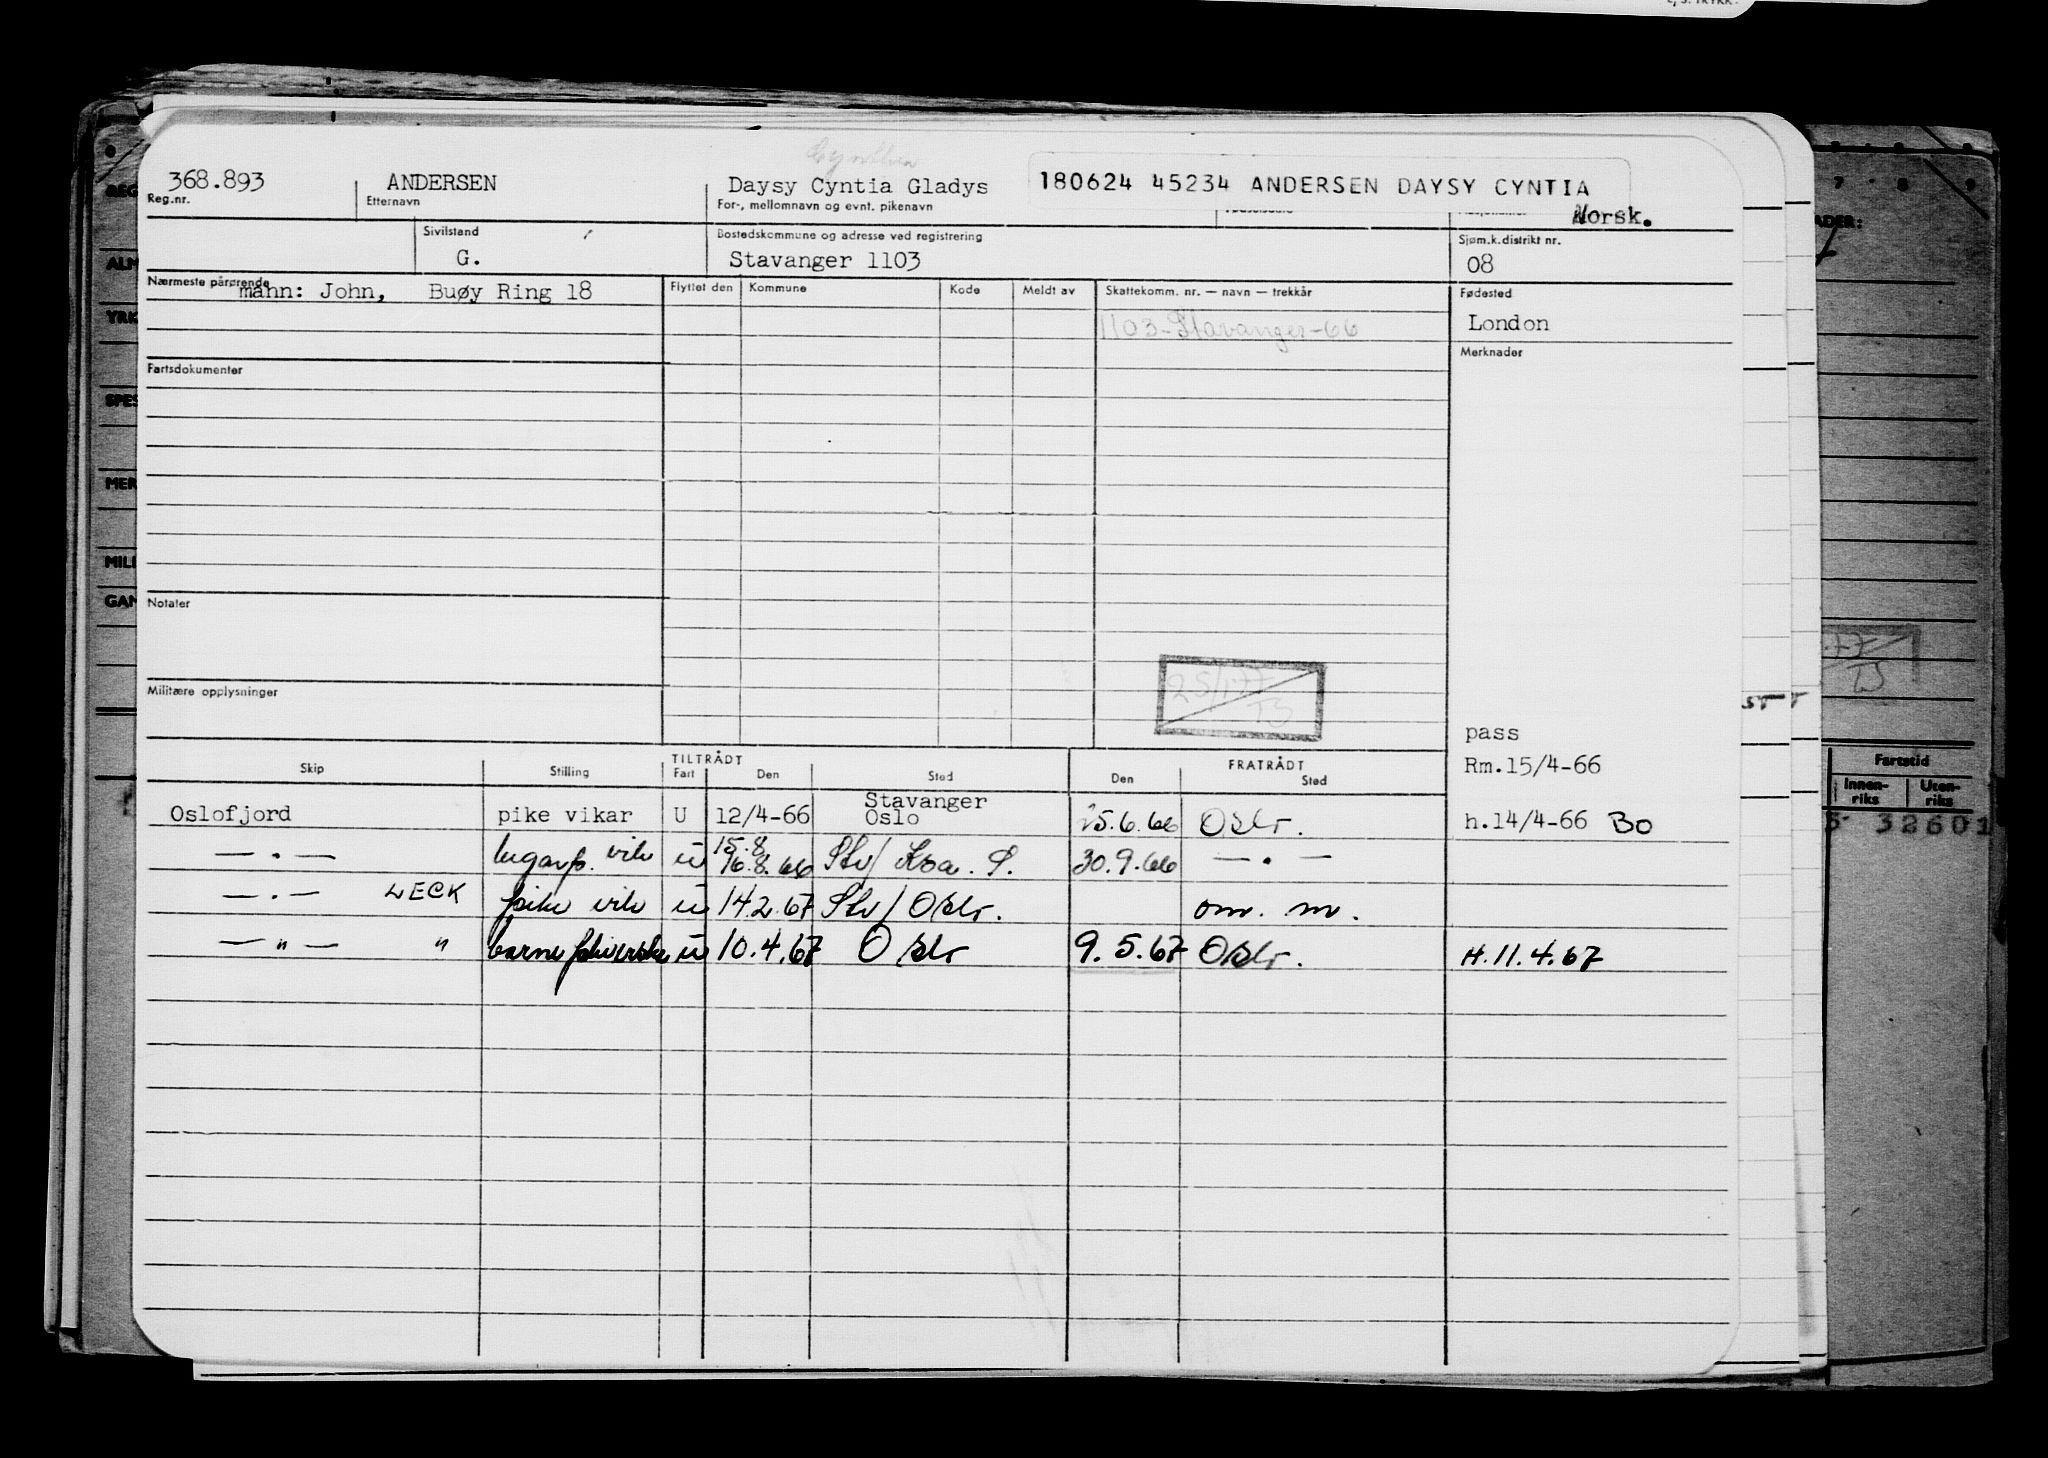 L, S. TRYKK.
Cynthia
368.893 ANDERSEN Daysy Cyntia Gladys 180624 45234 ANDERSEN DAYSY CYNTIA
Reg.nr. Etternavn For-, mellomnavn og evnt. pikenavn
Norsk.
Sivilstand Bostedskommune og adresse ved registrering Sjøm.k.distrikt nr.
G. Stavanger 1103 08
Nærmeste pårørende Flyttet den Kommune Kode Meldt av Skattekomm. nr. — navn — trekkår Fødested
mann: John, Buøy Ring 18
1103-Stavanger-66 London
Merknader
Fartsdokumenter
Notater
25/1-77
TS
Militære opplysninger
pass
Rm.15/4-66
Skip Stilling TILTRÅDT FRATRÅDT
Fart Den Sted Den Sted
Stavanger
Oslofjord pike vikar U 12/4-66 Oslo 25.6.66 Oslo. h.14/4-66 BO
15.8.
— . — lugarp. vik u 16.8.66 Stv/ Kra. S. 30.9.66 — . —
— . — DECK pike vik u 14.2.67 Stv/ Oslo. om. m.
— " — " barnepleierske u 10.4.67 Oslo 9.5.67 Oslo. H.11.4.67
REG
ALM
YRK
SPES
MER
MILI
GAN
7 8 9
ADER:
.77
TS
Fartstid
Innen-
riks
Uten-
riks
5 32601